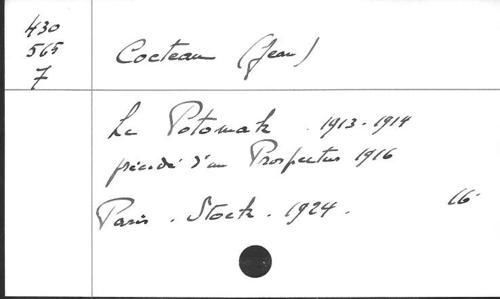 430
565
7
Cocteau (Jean)
Le Potomak . 1913-1914
précédé d'un Prospectus 1916
Paris . Stock . 1924 . 16-